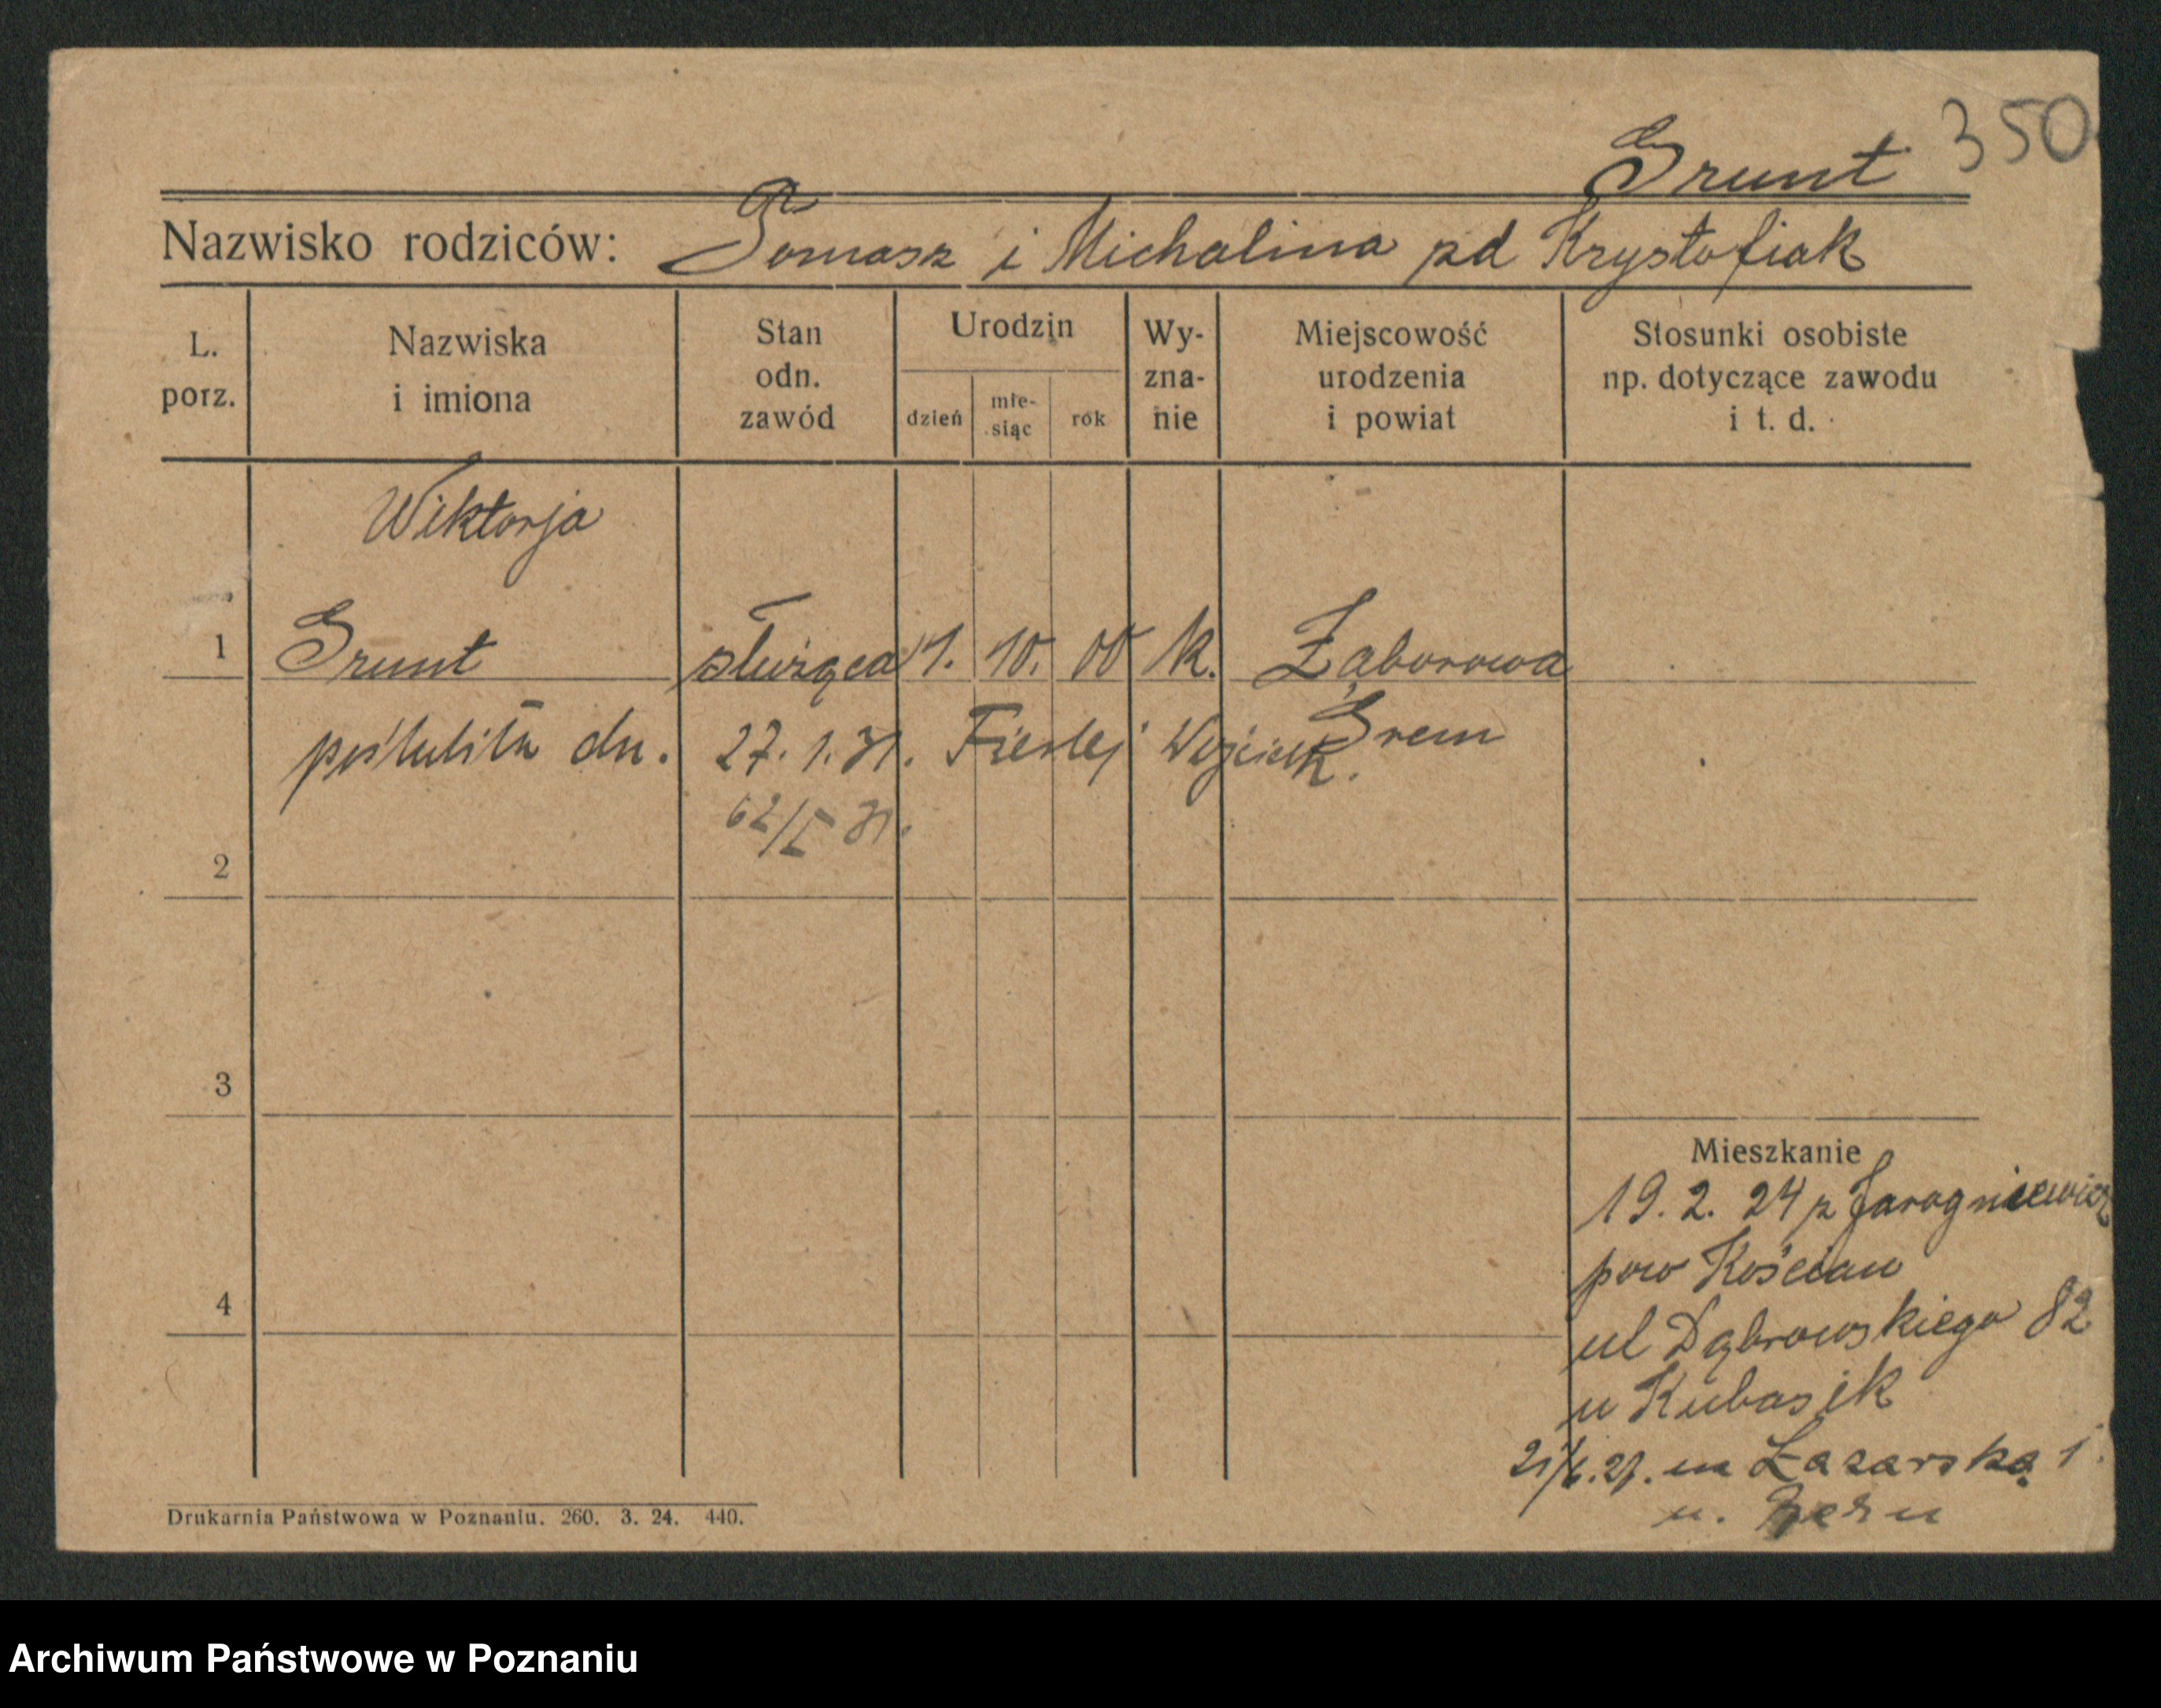 Grunt 350
Nazwisko rodziców: Tomasz i Michalina pd Krystofiak
L. porz.
Nazwiska i imiona
Stan odn. zawód
Urodzin
dzień
mie-siąc
rok
Wy-zna-nie
Miejscowość urodzenia i powiat
Stosunki osobiste np. dotyczące zawodu i t. d.
Wiktorja
1 Grunt służąca 1. 10. 00 k. Zaborowa
poślubiła dn. 27. 1. 31. Wojciech. Śrem
62/I 31.
2
3
4
Mieszkanie
19. 2. 24 z Jarogniewic
pow Kościan
ul Dąbrowskiego 82
u Kubasik
na Łazarską 1
u.
Drukarnia Państwowa w Poznaniu. 260. 3. 24. 440.
Archiwum Państwowe w Poznaniu